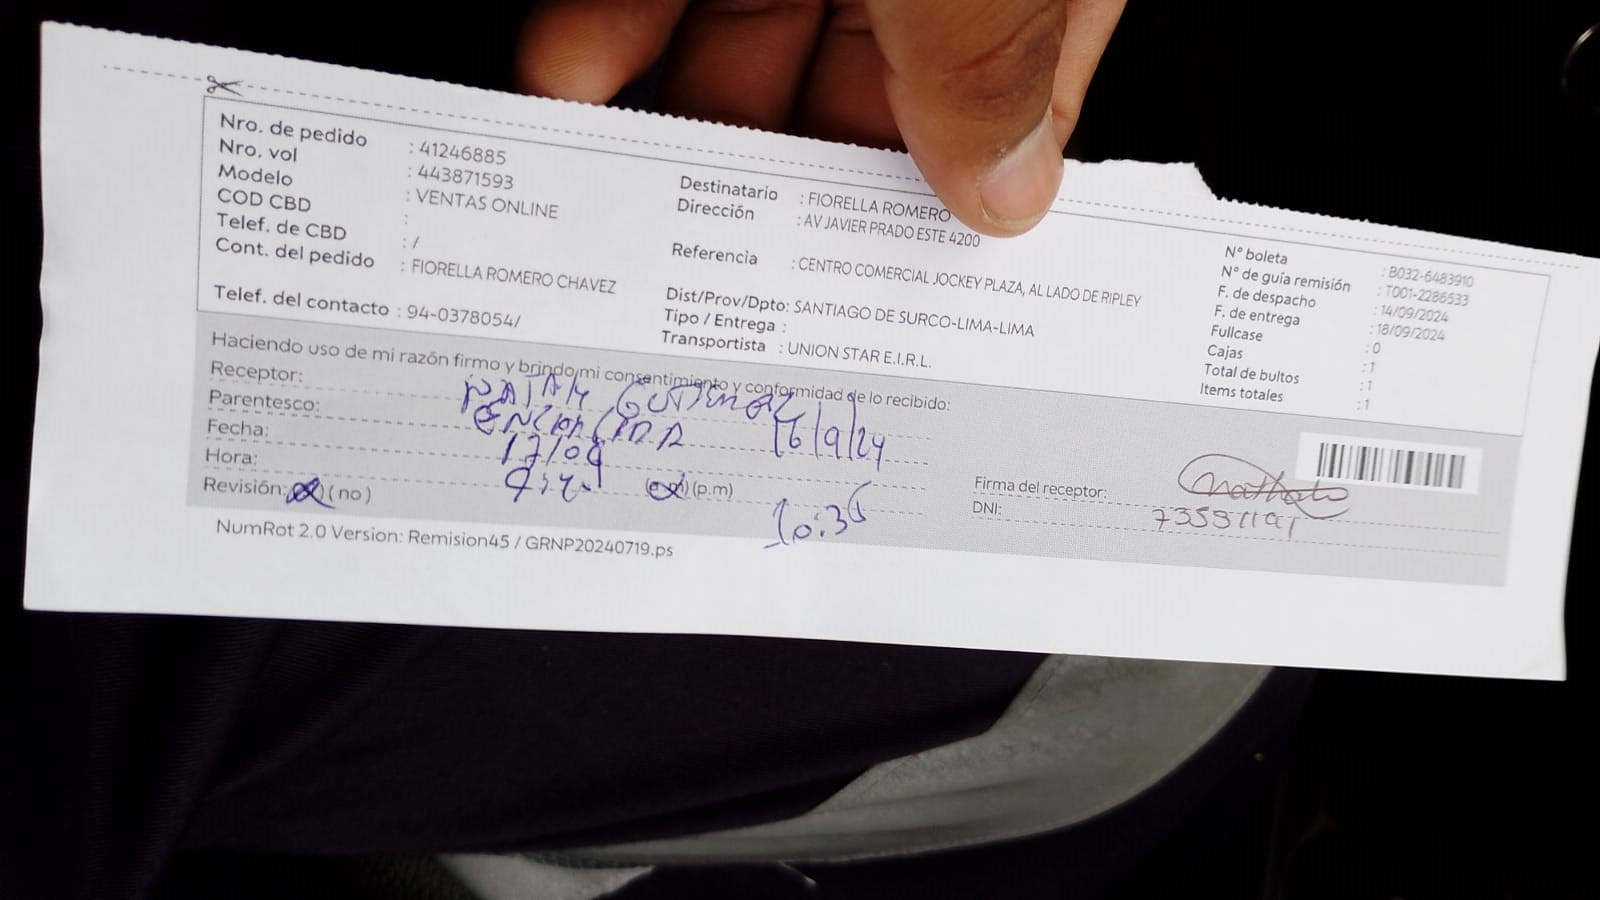 Nro. de pedido : 41246885
Nro. vol : 443871593
Modelo : VENTAS ONLINE
COD CBD :
Telef. de CBD : /
Cont. del pedido : FIORELLA ROMERO CHAVEZ
Telef. del contacto : 94-0378054/
Destinatario : FIORELLA ROMERO
Dirección : AV JAVIER PRADO ESTE 4200
Referencia : CENTRO COMERCIAL JOCKEY PLAZA, AL LADO DE RIPLEY
Dist/Prov/Dpto: SANTIAGO DE SURCO-LIMA-LIMA
Tipo / Entrega :
Transportista : UNION STAR E.I.R.L.
N° boleta : B032-6483910
N° de guía remisión : T001-2286533
F. de despacho : 14/09/2024
F. de entrega : 18/09/2024
Fullcase : 0
Cajas : 1
Total de bultos : 1
Items totales : 1
Haciendo uso de mi razón firmo y brindo mi consentimiento y conformidad de lo recibido:
Receptor:
Parentesco: 16/9/24
Fecha: 17/09
Hora: (p.m)
Revisión: (no) 10:36
Firma del receptor:
DNI:
NumRot 2.0 Version: Remision45 / GRNP20240719.ps